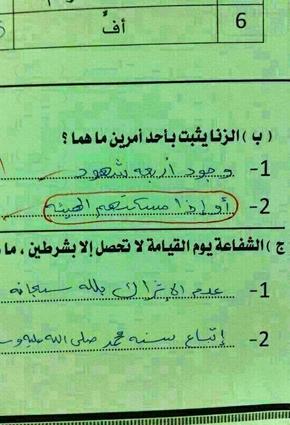 6 أفٍّ
( ب ) الزنا يثبت بأحد أمرين ما هما ؟
1- وجود اربعه شهود
2- أو إذا مسكتهم الهيئه
ج ) الشفاعة يوم القيامة لا تحصل إلا بشرطين ،
1- عدم الإشراك بالله سبحانه
2- إتباع سنه محمد صلى الله عليه وس